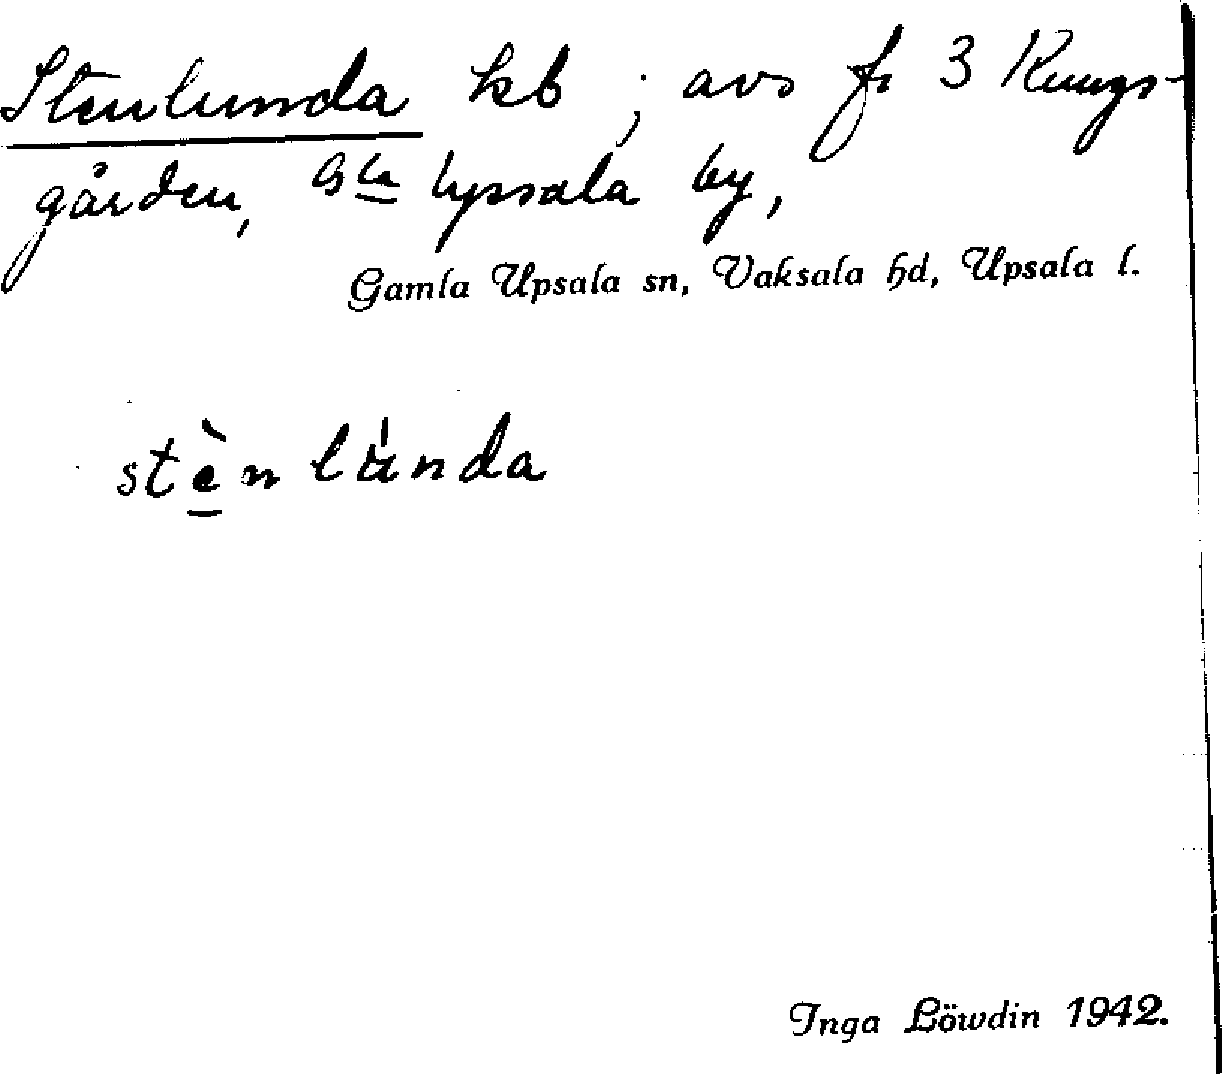 Stenlunda kb ; avs fr 3 Kungs-
gården, Gla Uppsala by,
Gamla Upsala sn, Vaksala hd, Upsala l.
stèn lùnda
Inga Löwdin 1942.